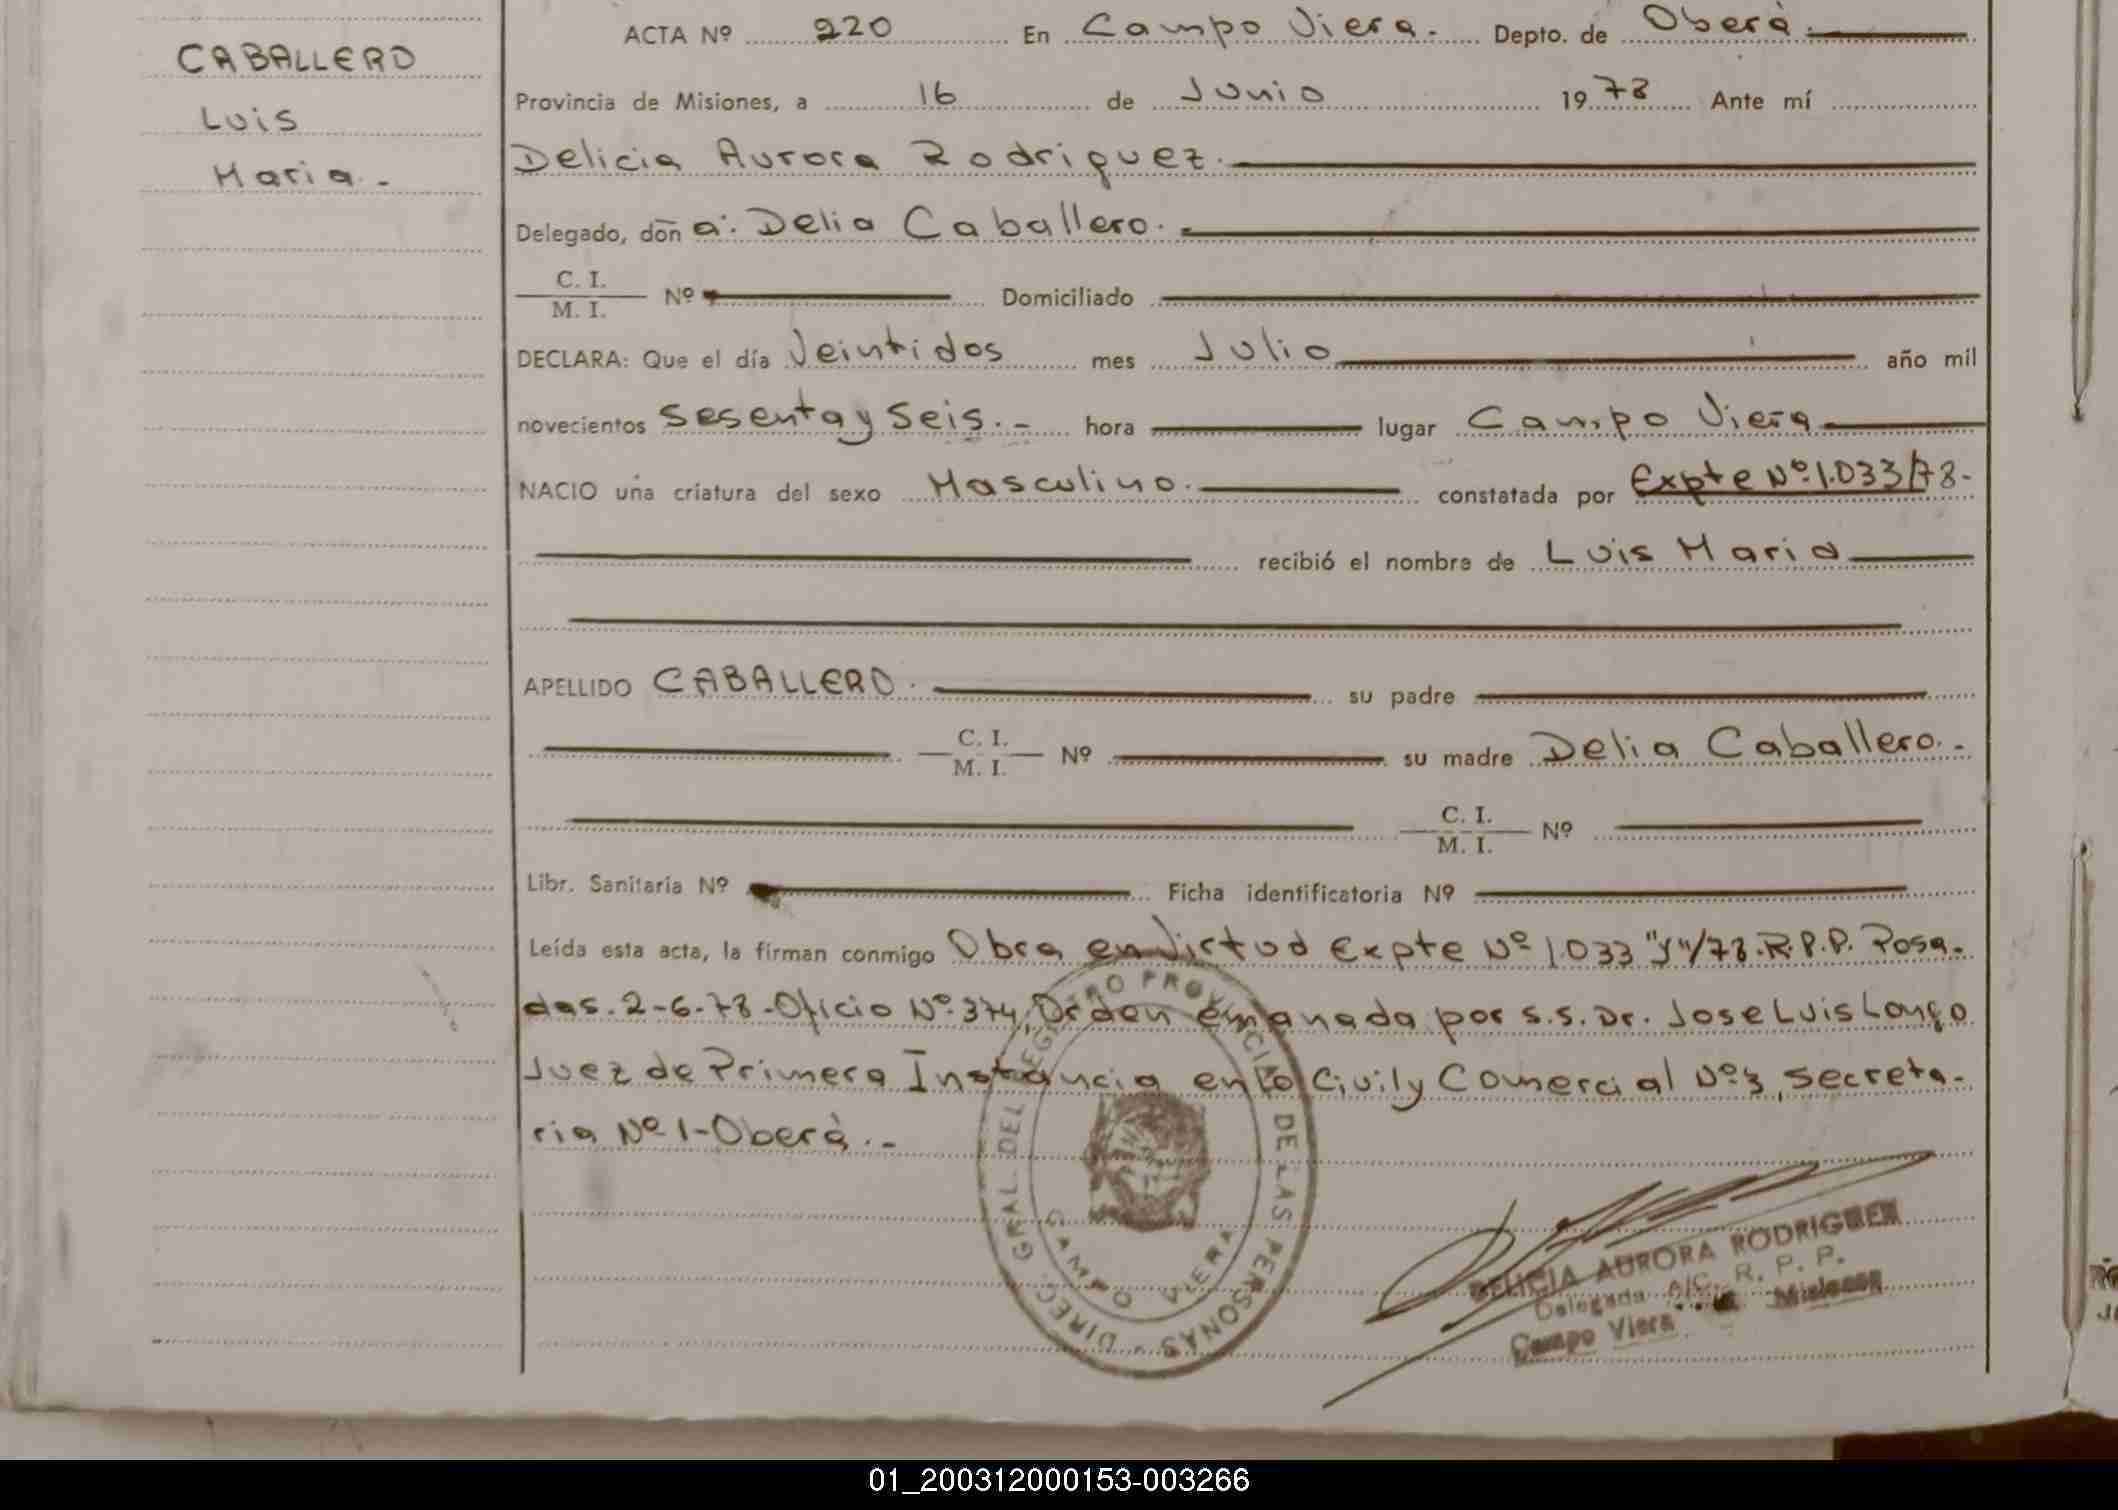 CABALLERO
Luis
Maria.-
ACTA Nº 220 En Campo Viera. Depto. de Oberá
Provincia de Misiones, a 16 de Junio 1978 Ante mí
Delicia Aurora Rodriguez.
Delegado, doñ a: Delia Caballero.
C. I.
M. I. Nº Domiciliado
DECLARA: Que el día Veintidos mes Julio año mil
novecientos Sesenta y Seis.- hora lugar Campo Viera
NACIO una criatura del sexo Masculino. constatada por Expte Nº 1.033/78-
recibió el nombre de Luis Maria
APELLIDO CABALLERO. su padre
C. I.
M. I. Nº su madre Delia Caballero.-
C. I.
M. I. Nº
Libr. Sanitaria Nº Ficha identificatoria Nº
Leída esta acta, la firman conmigo Obra en Virtud Expte Nº 1.033 "J"/78.R.P.P. Posa-
das.2-6-78-Oficio Nº 374, Orden emanada por s.s. Dr. Jose Luis Longo
Juez de Primera Instancia en lo Civil y Comercial Nº3, secreta-
ria Nº 1-Oberá.-
DIREC. GRAL. DEL REGISTRO PROVINCIAL DE LAS PERSONAS -
CAMPO VIERA
DELICIA AURORA RODRIGUEZ
Delegada A/C. R. P. P.
Campo Viera - Misiones
01_200312000153-003266